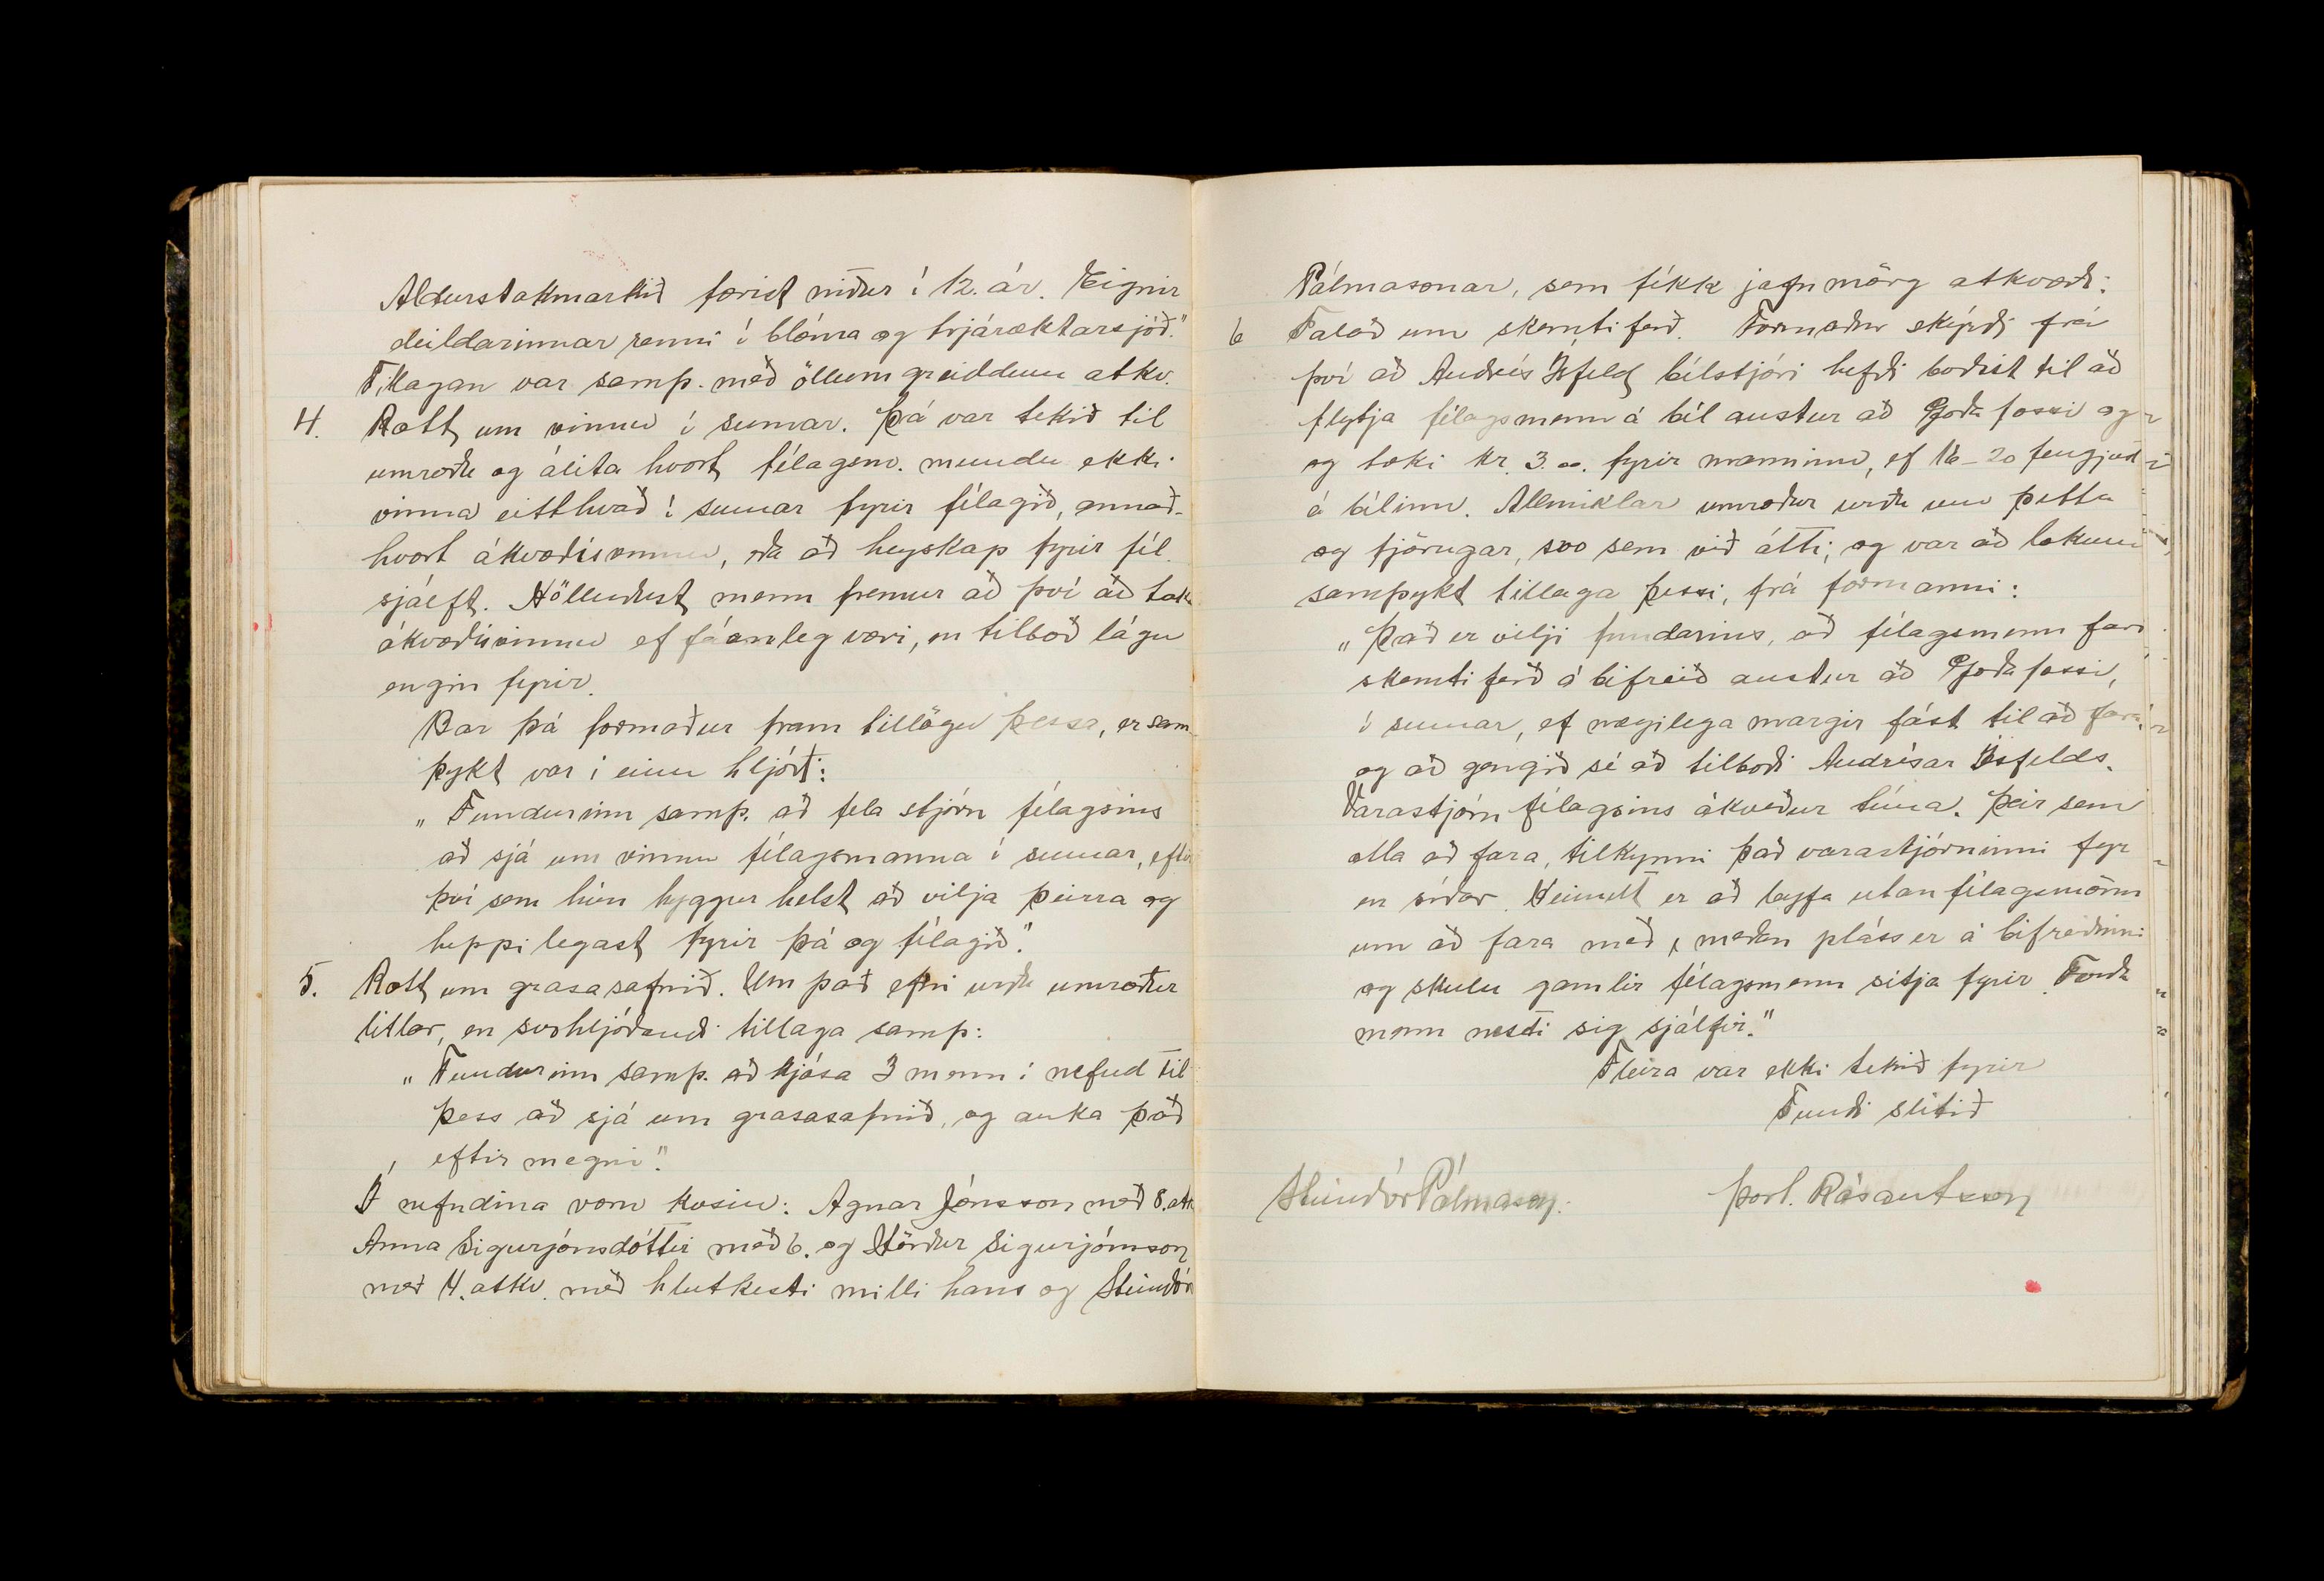 Aldurstakmarkið færist niður í 12. ár. Eignir
deildarinnar renni í blóma og trjáræktarsjóð."
Tillagan var samþ. með öllum greiddum atkv.
4. Rætt um vinnu í sumar. Þá var tekið til
umræðu og álita hvort félagsm. mundu ekki
vinna eitthvað í sumar fyrir félagið, annað-
hvort ákvæðisvinnu, eða að heyskap fyrir fél.
sjálft. Hölluðust menn fremur að því að taka
ákvæðisvinnu ef fáanleg væri, en tilboð lágu
engin fyrir.
Bar þá formaður fram tillögu þessa, er sam-
þykt var í einu hljóði:
„Fundurinn samþ. að fela stjórn félagsins
að sjá um vinnu félagsmanna í sumar, eftir
því sem hún hyggur helst að vilja þeirra og
heppilegast fyrir þá og félagið".
5. Rætt um grasasafnið. Um það efni urðu umræður
litlar, en svohljóðandi tillaga samþ:
„Fundurinn samþ. að kjósa 3 menn í nefnd til
þess að sjá um grasasafnið, og auka það
eftir megni".
Í nefndina voru kosin: Agnar Jónsson með 8. atk
Anna Sigurjónsdóttir með 6. og Hörður Sigurjónsson
með 4. atkv. með hlutkesti milli hans og Steindórs
Pálmasonar, sem fékk jafnmörg atkvæði.
6 Talað um skemtiferð. Formaður skýrði frá
því að Andrés Ísfeld bílstjóri hefði boðist til að
flytja félagsmenn á bíl austur að Goðafossi og
og tæki kr. 3.00. fyrir manninn, ef 16-20 fengjust
á bílinn. Allmiklar umræður urðu um þetta
og fjörugar, svo sem við átti; og var að lokum
samþykt tillaga þessi, frá formanni:
„Það er vilji fundarins, að félagsmenn fari
skemtiferð á bifreið austur að Goðafossi,
í sumar, ef nægilega margir fást til að fara,
og að gengið sé að tilboði Andrésar Ísfelds.
Varastjórn félagsins ákveður tíma. Þeir sem
ætla að fara, tilkynni það varastjórninni fyr
en síðar. Heimilt er að leyfa utanfélagsmönn
um að fara með, meðan pláss er á bifreiðinni
og skulu gamlir félagsmenn sitja fyrir.
menn nesti sig sjálfir."
Fleira var ekki tekið fyrir
Fundi slitið
Steindór Pálmason. Þorl. Rósantsson